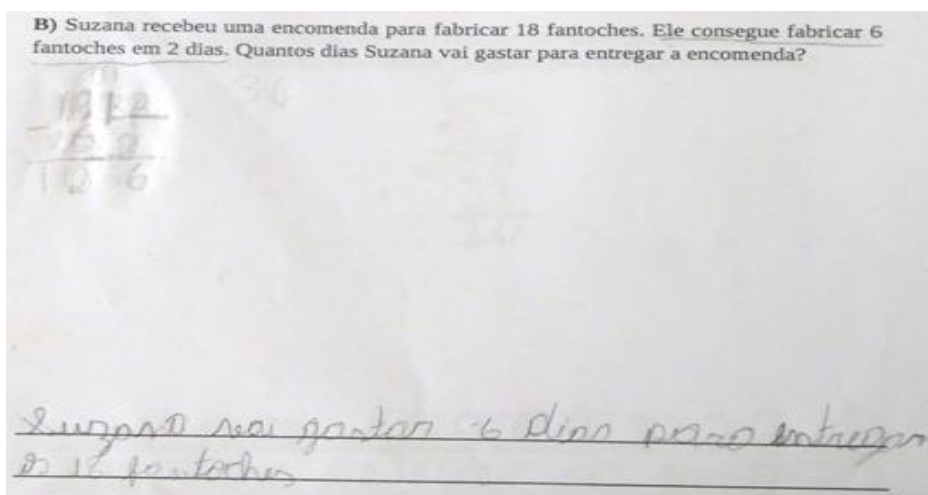 B) Suzana recebeu uma encomenda para fabricar 18 fantoches. Ele consegue fabricar 6
fantoches em 2 dias. Quantos dias Suzana vai gastar para entregar a encomenda?
36
-
1 2 6
vai gastar 6 dias para entregar
18 fantoches